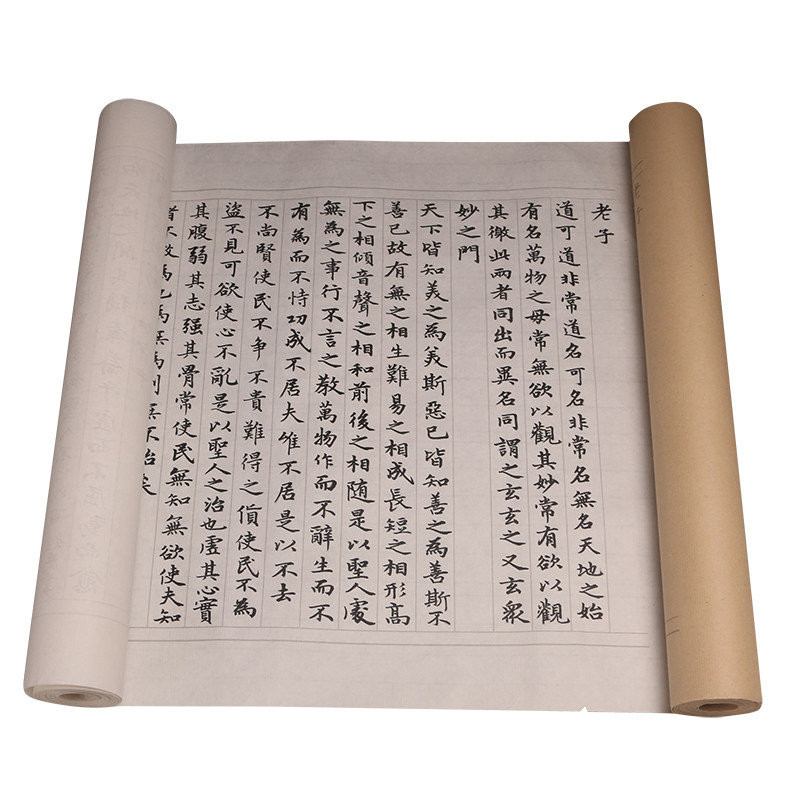 老子
道可道非常道名可名非常名無名天地之始
有名萬物之母常無欲以觀其妙常有欲以觀
其徼此兩者同出而異名同謂之玄玄之又玄眾
妙之門
天下皆知美之為美斯惡已皆知善之為善斯不
善已故有無之相生難易之相成長短之相形高
下之相傾音聲之相和前後之相随是以聖人處
無為之事行不言之教萬物作而不辭生而不
有為而不恃功成不居夫唯不居是以不去
不尚賢使民不争不貴難得之貨使民不為
盜不見可欲使心不亂是以聖人之治也虛其心實
其腹弱其志强其骨常使民無知無欲使夫知
者不敢為也為無為則無不治矣